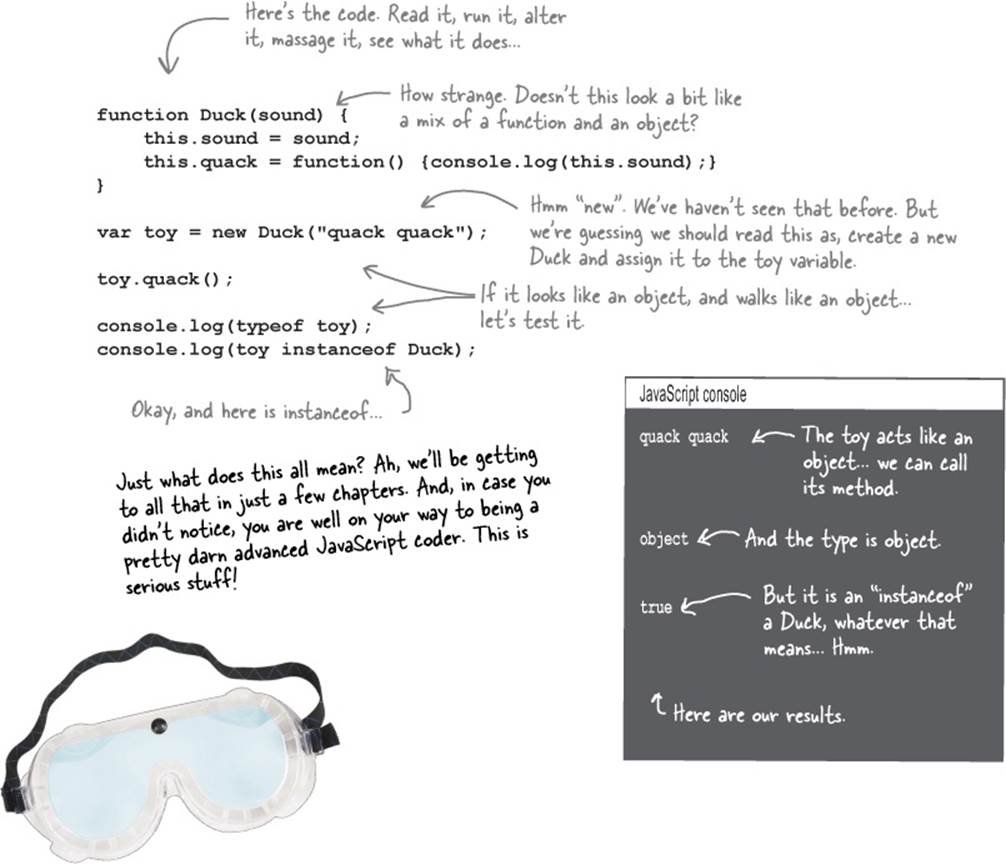 Here's the code. Read it, run it, alter
it, massage it, see what it does...
function Duck(sound) {
How strange. Doesn't this look a bit like
a mix of a function and an object?
this.sound = sound;
this.quack = function() {console.log(this.sound);}
}
Hmm "new". We've haven't seen that before. But
we're guessing we should read this as, create a new
Duck and assign it to the toy variable.
var toy = new Duck("quack quack");
toy.quack();
If it looks like an object, and walks like an object...
let's test it.
console.log(typeof toy);
console.log(toy instanceof Duck);
Okay, and here is instanceof...
Just what does this all mean? Ah, we'll be getting
to all that in just a few chapters. And, in case you
didn't notice, you are well on your way to being a
pretty darn advanced JavaScript coder. This is
serious stuff!
JavaScript console
quack quack
The toy acts like an
object... we can call
its method.
object
And the type is object.
true
But it is an "instanceof"
a Duck, whatever that
means... Hmm.
Here are our results.